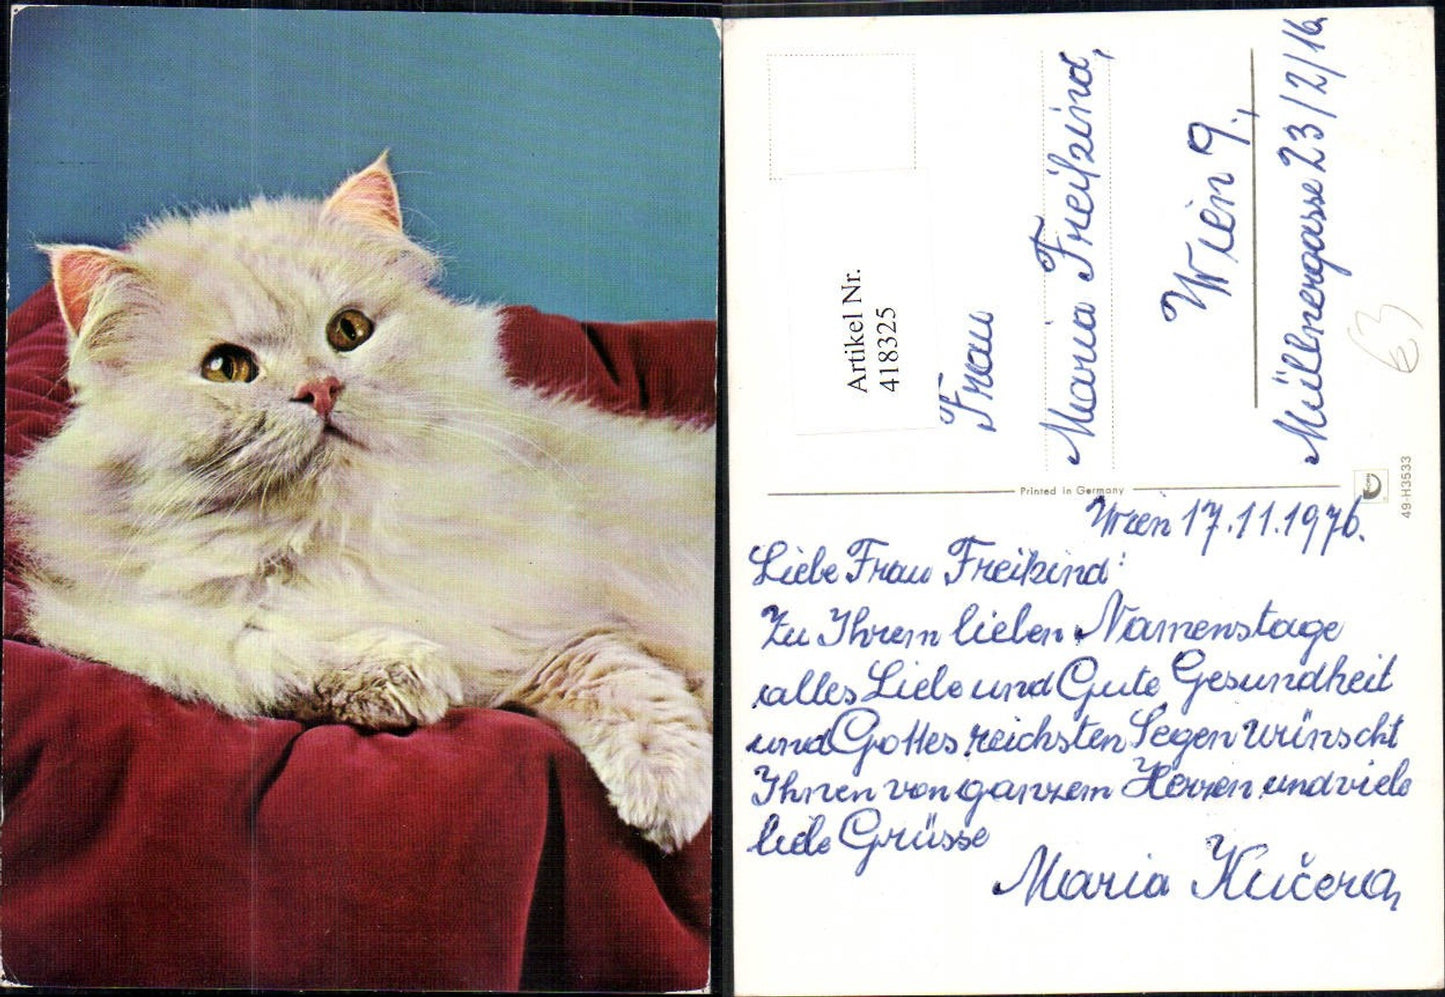 Artikel Nr.
418325
Frau
Maria Freikind,
Wien 9.,
Müllnergasse 23/2/16
63
Printed in Germany
49-H3533
Wien 17.11.1976.
Liebe Frau Freikind:
Zu Ihrem lieben Namenstage
alles Liebe und Gute Gesundheit
und Gottes reichsten Segen wünscht
Ihnen von ganzem Herzen und viele
liebe Grüsse
Maria Kučera,